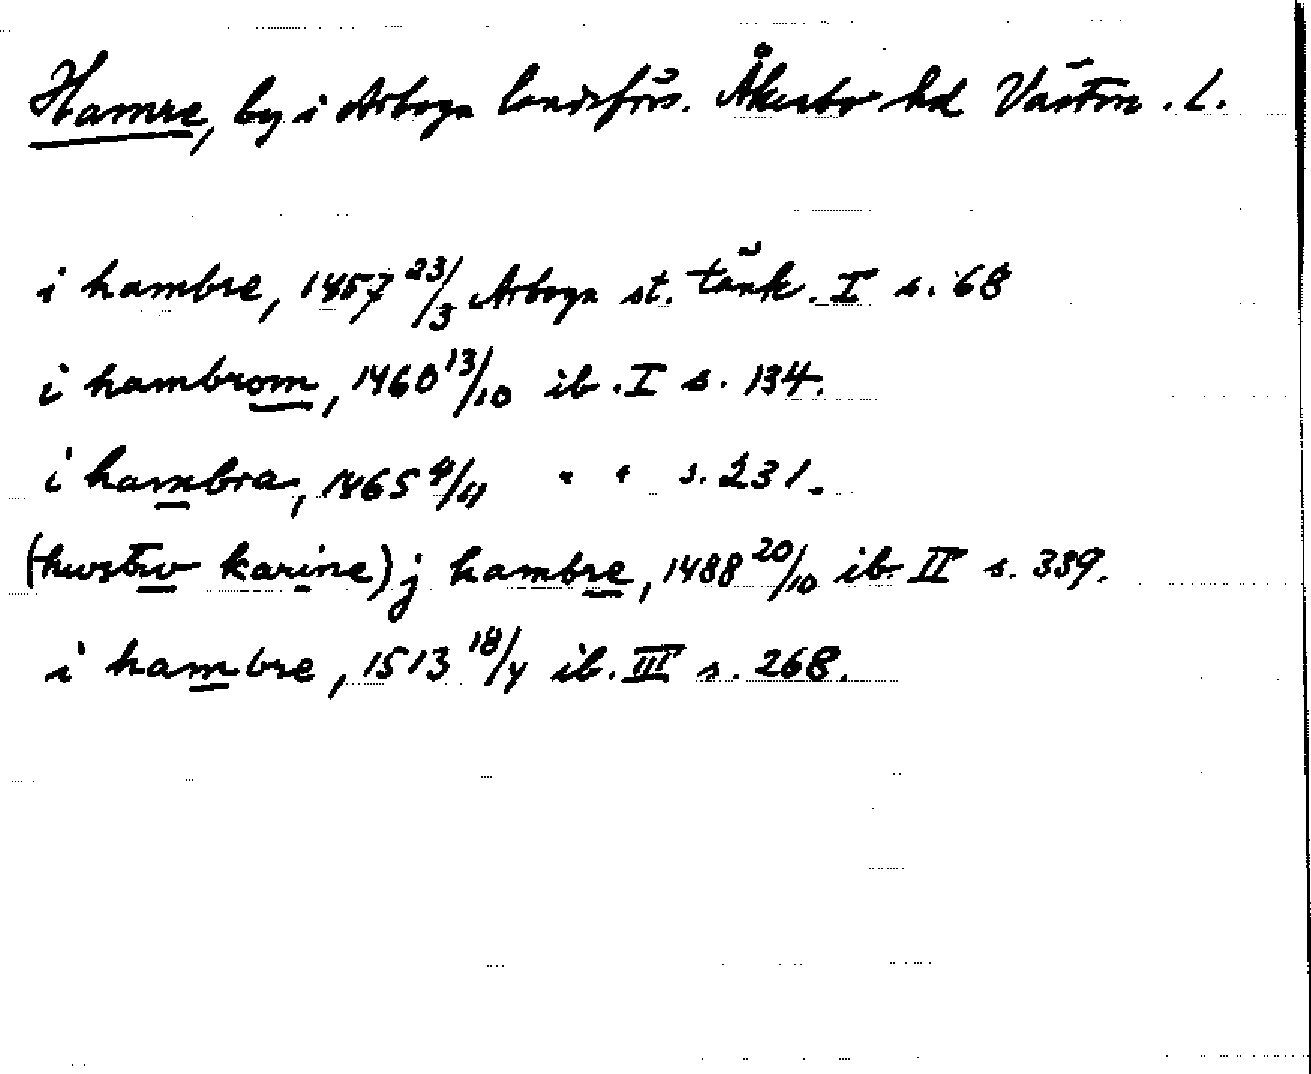 Hamre, by i Arboga landsförs. Åkerbo hd Västm. L.
i hambre, 1457 23/3 Arboga st. tänk. I s. 68
i hambrom, 1460 13/10 ib. I s. 134.
i hambra, 1465 4/11 " " s. 231.
(hustrv karine) j hambre, 1488 20/10 ib II s. 339.
i hambre, 1513 18/4 ib. III s. 268.